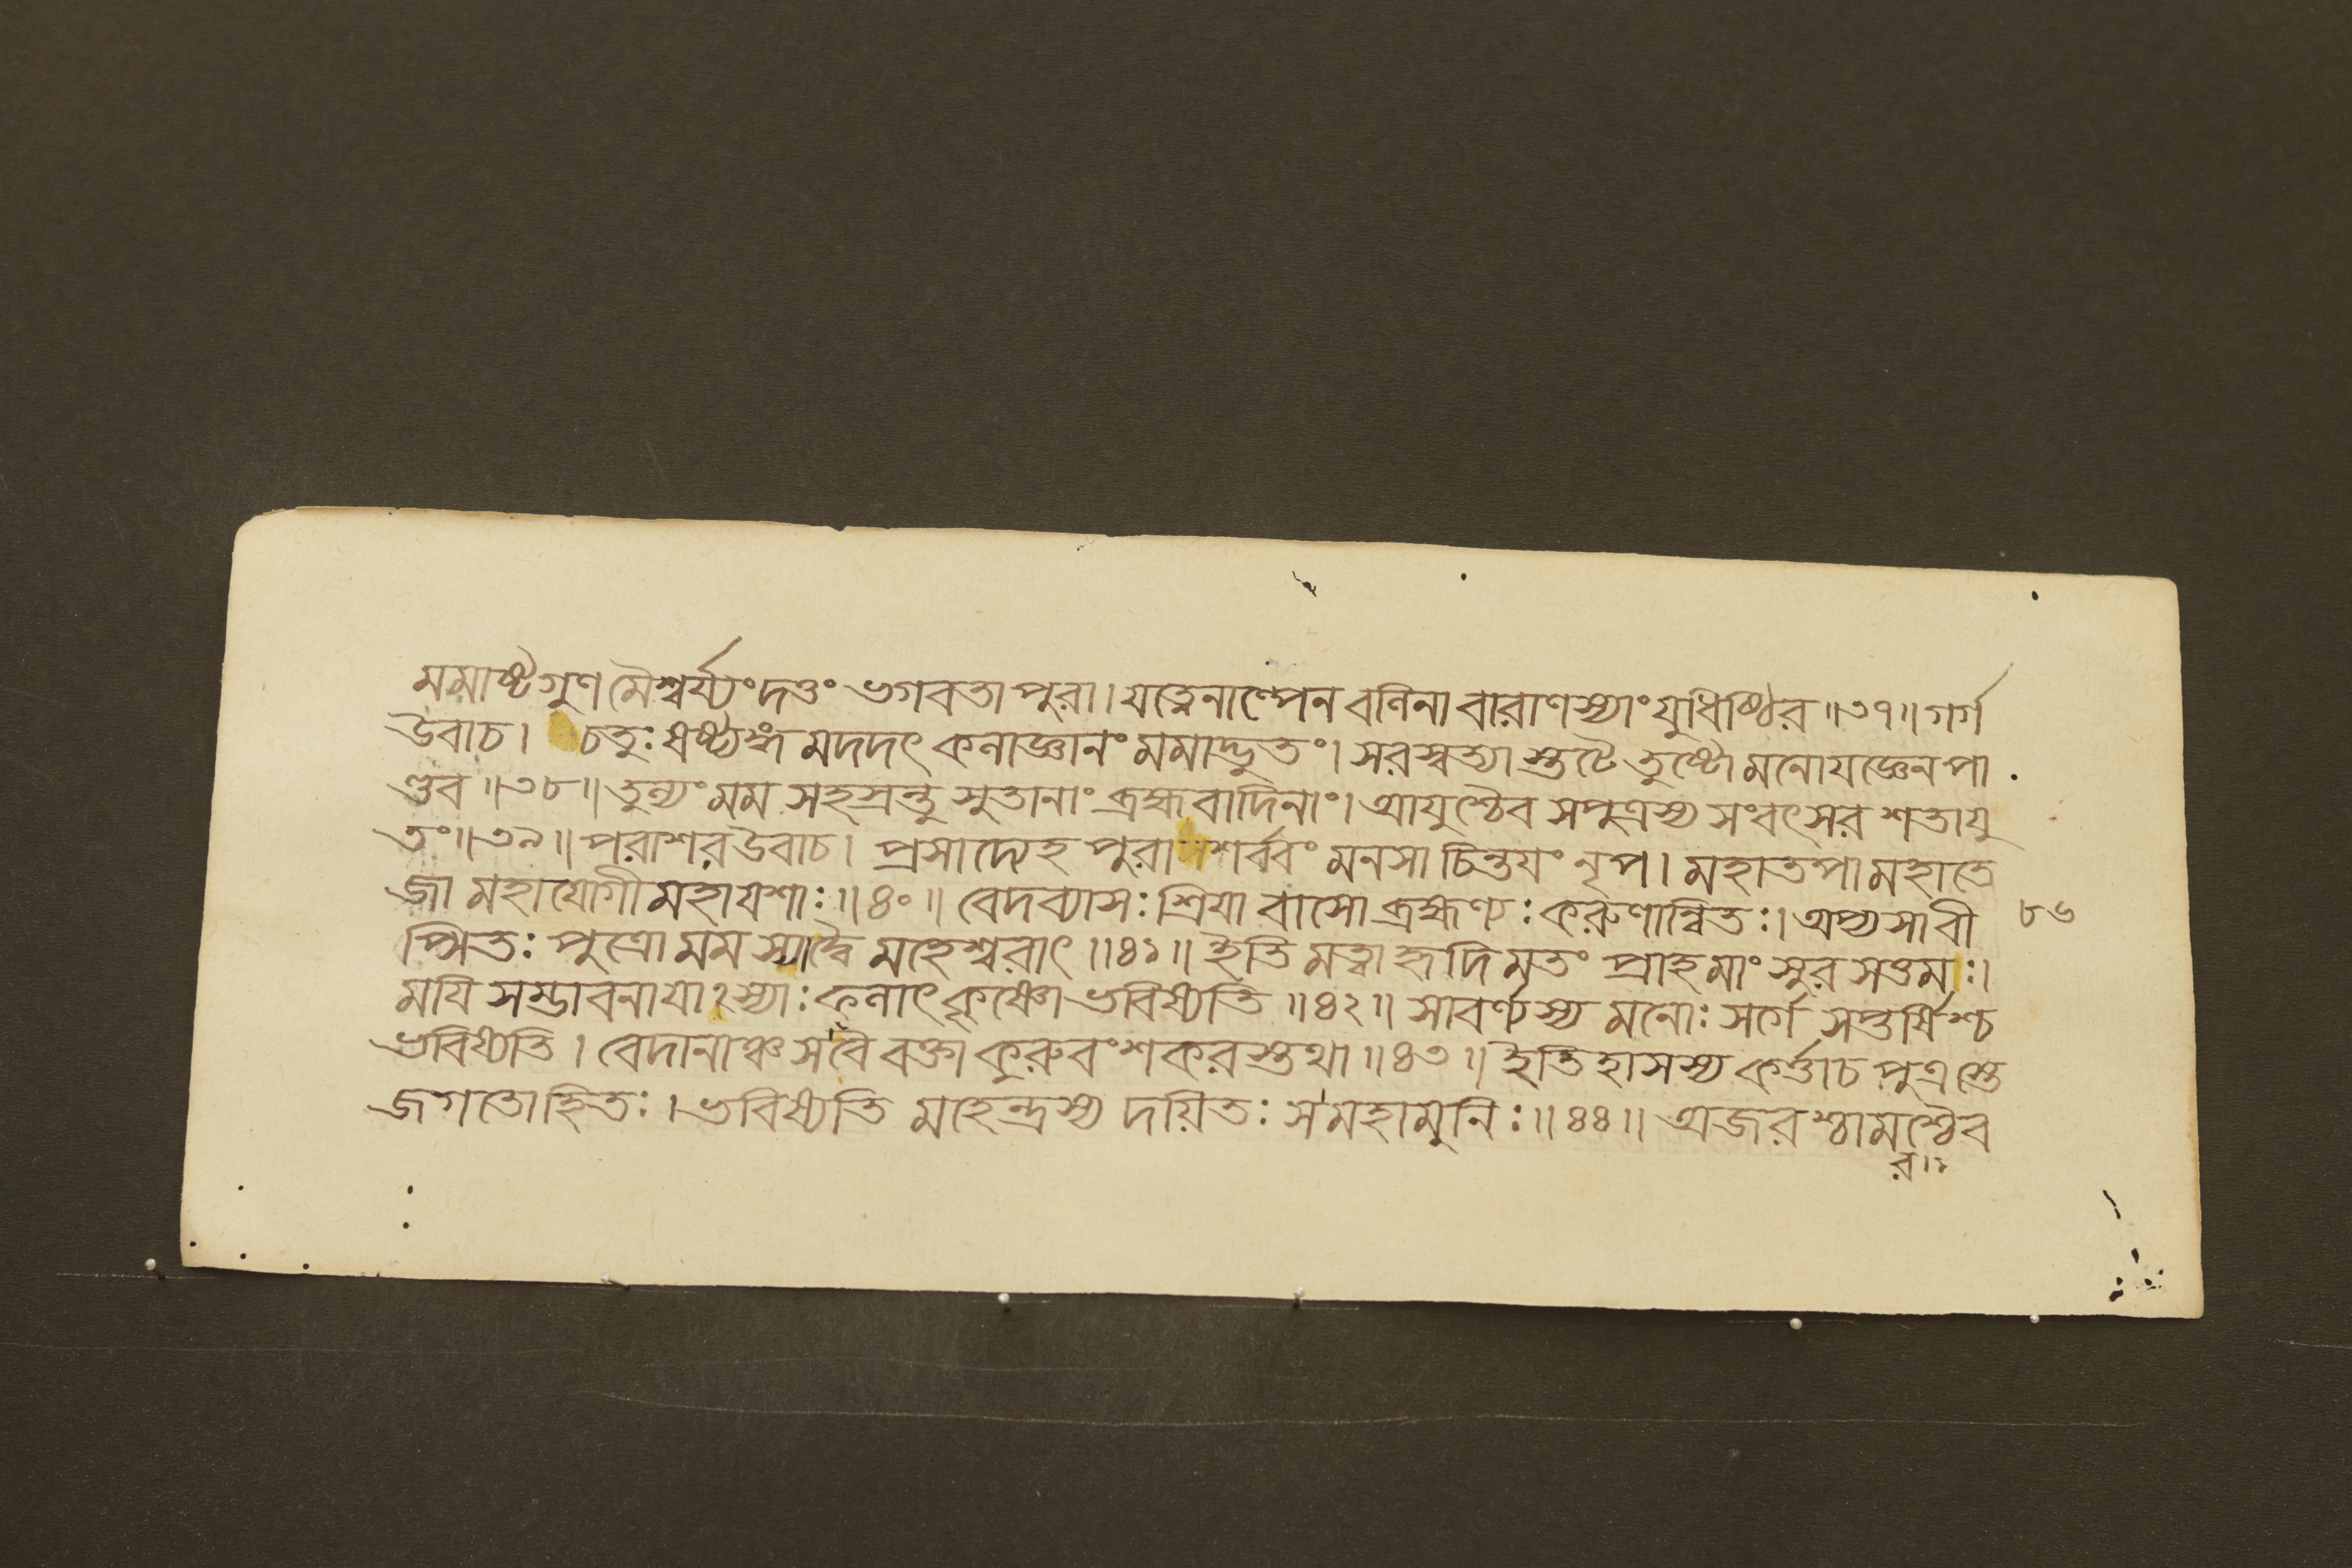 মমাষ্টগুণমৈশ্বর্য্যং দত্তং ভগবতা পুরা। যত্নেনাল্পেন বলিনা বারাণস্যাং যুধিষ্ঠির॥৩৭॥ গর্গ
উবাচ। চতুঃষষ্ট্যঙ্গমদদৎ কলাজ্ঞানং মমাদ্ভুতং। সরস্বত্যাস্তটে তুষ্টো মনোযজ্ঞেন পা
ণ্ডব॥৩৮॥ তুল্যং মম সহস্রন্তু সুতানাং ব্রহ্মবাদিনাং। আয়ুশ্চৈব সপুত্রস্য সংবৎসর শতাযু
তং॥৩৯॥ পরাশর উবাচ। প্রসাদ্যেহ পুরা শর্ব্বং মনসা চিন্তয়ং নৃপ। মহাতপা মহাতে
জা মহাযোগী মহাযশাঃ॥৪০॥ বেদব্যাসঃ শ্রিয়া বাসো ব্রহ্মণ্যঃ করুণান্বিতঃ। অপ্যসাবী
৮৬
প্সিতঃ পুত্রো মম স্যাদ্বৈ মহেশ্বরাৎ॥৪১॥ ইতি মত্বা হৃদি মতং প্রাহ মাং সুরসত্তমঃ।
ময়ি সম্ভাবনা যাঽস্যাঃ ফলাৎ কৃষ্ণো ভবিষ্যতি॥৪২॥ সাবর্ণস্য মনোঃ সর্গে সপ্তর্ষিশ্চ
ভবিষ্যতি। বেদানাঞ্চ স বৈ বক্তা কুরুবংশকরস্তথা॥৪৩॥ ইতিহাসস্য কর্ত্তা চ পুত্রস্তে
জগতোহিতঃ। ভবিষ্যতি মহেন্দ্রস্য দয়িতঃ স মহামুনিঃ॥৪৪॥ অজরশ্চামশ্চৈব
র